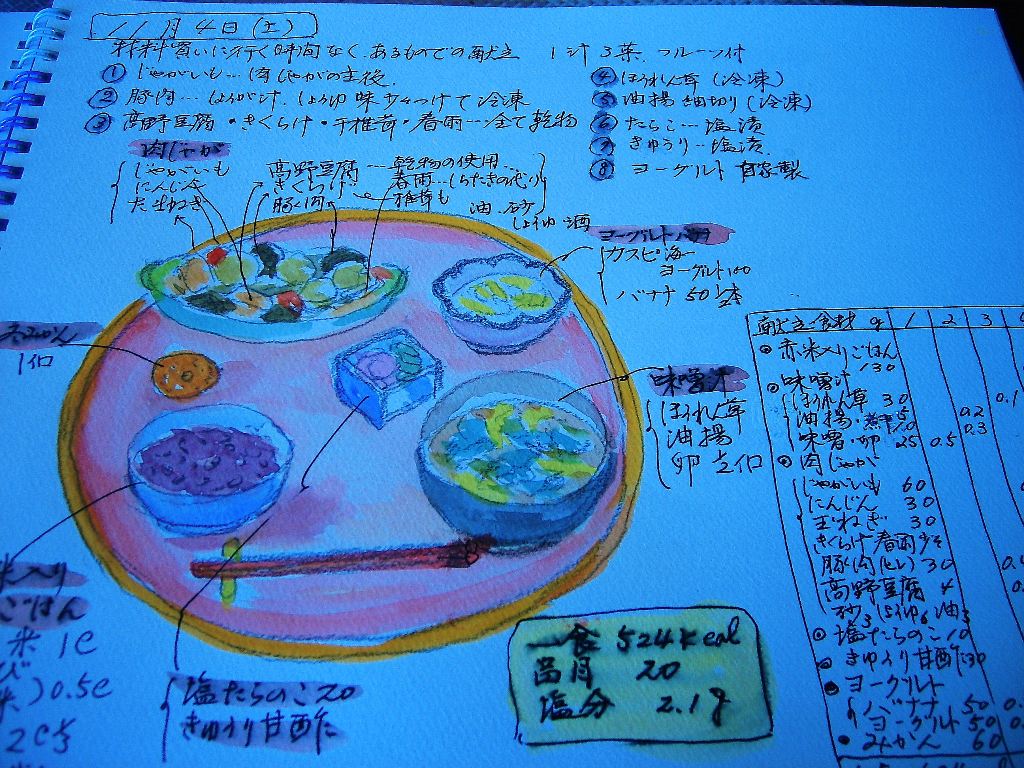 11月4日(土)
材料買いに行く時間なく、あるものでの献立 1汁3菜、フルーツ付
① じゃがいも…肉じゃがの主役
② 豚肉…しょうが汁、しょうゆ味をつけて冷凍
③ 高野豆腐・きくらげ・干椎茸・春雨…全て乾物
④ ほうれん草(冷凍)
⑤ 油揚細切り(冷凍)
⑥ たらこ…塩漬
⑦ きゅうり…塩漬
⑧ ヨーグルト 自家製
肉じゃが
じゃがいも
にんじん
たまねぎ
高野豆腐…乾物の使用
きくらげ 春雨…しらたきの代り
豚肉 椎茸も
油、砂、
しょうゆ 酒
ヨーグルトバナナ
カスピ海
ヨーグルト100
バナナ 50
みかん
1個
味噌汁
ほうれん草
油揚
卵 1/2個
米入り
ごはん
米 1C
0.5C
塩たらのこ20
きゅうり甘酢
一食 524Kcal
品目 20
塩分 2.1g
献立・食材 g 1 2 3
赤米入りごはん
130
味噌汁
ほうれん草 30 0.1
油揚・煮干 5 0.2
味噌・卵 25 0.5 0.3
肉じゃが
じゃがいも 60
にんじん 30
玉ねぎ 30
きくらげ 春雨 少々
豚肉(ヒレ) 30
高野豆腐 4
砂3 しょうゆ6 油3
塩たらのこ 10
きゅうり甘酢 30
ヨーグルト
バナナ 50
ヨーグルト 50
みかん 60